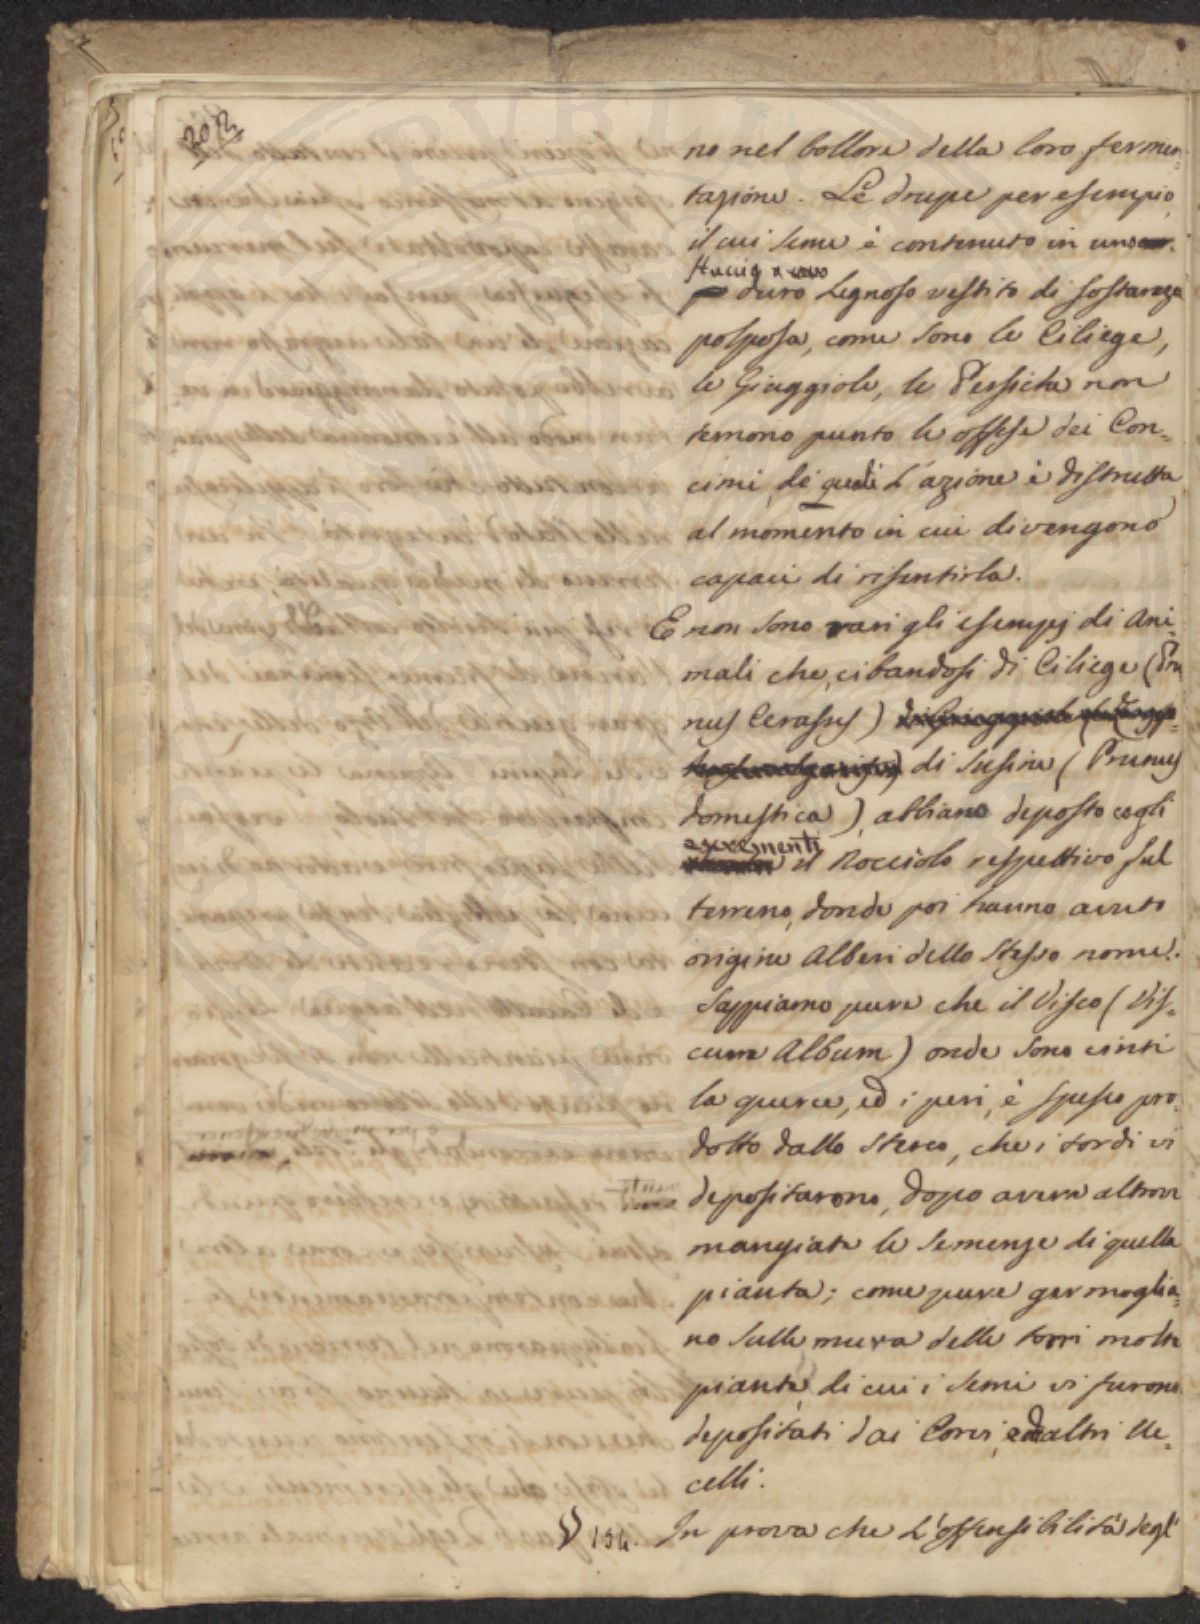 202
no nel bollore della loro fermen-
tazione. Le drupe per esempio,
il cui seme è contenuto in un
stuccio
duro Legnoso vestito di sostanza
polposa, come sono le Ciliege,
le Giuggiole, le Persiche non
temono punto le offese dei Con-
cimi, de' quali L'azione è distrutta
al momento in cui divengono
capaci di risentirla.
E non sono rari gli esempj di Ani-
mali che, cibandosi di Ciliege (Pru
nus Cerasus)
di Susine (Prunus
domestica), abbiano deposto cogli
escrementi
il Nocciolo respettivo sul
terreno, donde poi hanno avuto
origine Alberi dello stesso nome.
Sappiamo pure che il Visco (Vis-
cum Album) onde sono cinti
la querce, ed i peri, è spesso pro-
dotto dallo sterco, che i tordi vi
depositarono, dopo avere altrove
mangiate le semenze di quella
pianta; come pure germoglia-
no sulle mura delle torri molte
piante, di cui i semi vi furono
depositati dai Corvi, ed altri Uc-
celli.
V 134. In prova che L'offensibilità degl'